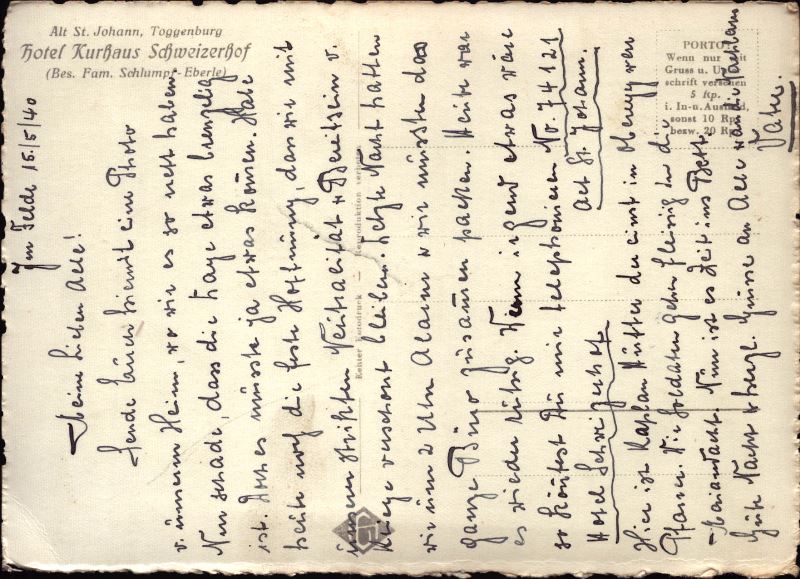 Alt St. Johann, Toggenburg
Hotel Kurhaus Schweizerhof
(Bes. Fam. Schlumpf-Eberle)
PORTO:
Wenn nur mit
Gruss u. Unter-
schrift versehen
5 Rp.
i. In- u. Ausland,
sonst 10 Rp.
bezw. 20 Rp.
Kehler Fotodruck — Reproduktion verboten
Im Felde 15/5/40
Meine Lieben Alle!
Sende Euch hiemit eine Photo
v. unserem Heim, wo wir es so nett haben.
Nur schade, dass die Lage etwas brenzelig
ist. Doch es müsste ja etwas können. Habe
heute noch die feste Hoffnung, das wir mit
unserer strikten Neutralität & Bereitsein v.
Kriege verschont bleiben. Letzte Nacht hatten
wir um 2 Uhr Alarm & wir mussten das
ganze Büro zusammen packen. Heute war
es wieder ruhig. Wenn irgend etwas wäre
so könntest Du mir telephonieren No. 74121
Hotel Schweizerhof Alt St. Johann.
Hier ist Kaplan Hutter der einst in Oberegg war
Pfarrer. Die Soldaten gehen fleissig in die
Maiandacht. Nun ist es Zeit ins Bett
Gute Nacht & herzl. Grüsse an Alle & an die Nachbarn
Vater.